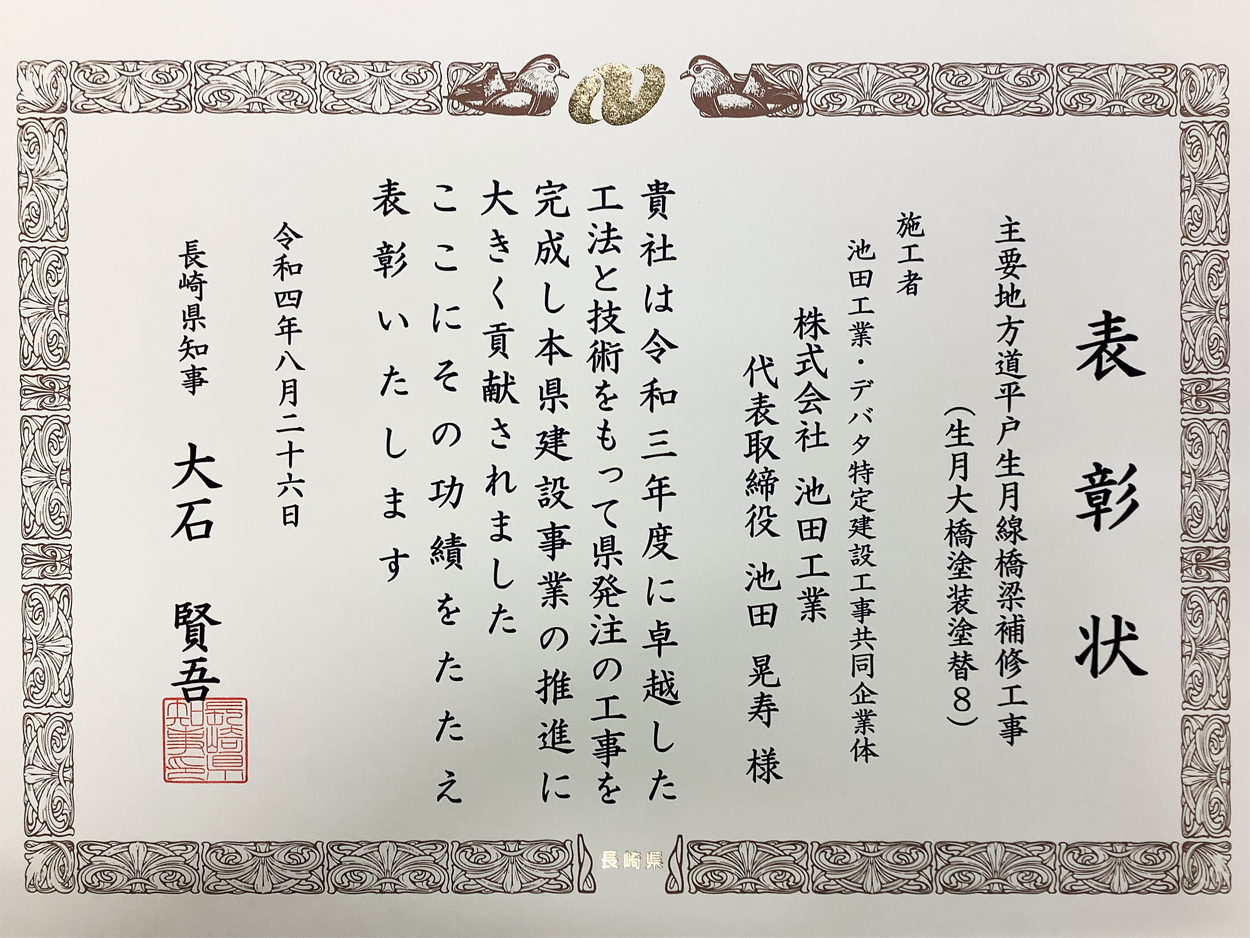 表彰状
主要地方道平戸生月線橋梁補修工事
（生月大橋塗装塗替８）
施工者
池田工業・デバタ特定建設工事共同企業体
株式会社 池田工業
代表取締役 池田 晃寿 様
貴社は令和三年度に卓越した
工法と技術をもって県発注の工事を
完成し本県建設事業の推進に
大きく貢献されました
ここにその功績をたたえ
表彰いたします
令和四年八月二十六日
長崎県知事 大石 賢吾
長崎県
知事印
長崎県